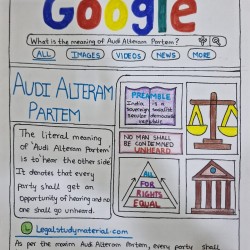 Google
What is the meaning of Audi Alteram Partem?
ALL IMAGES VIDEOS NEWS MORE
AUDI ALTERAM
PARTEM
The literal meaning
of 'Audi Alteram Partem'
is to hear the other side.
It denotes that every
party shall get an
opportunity of hearing and no
one shall go unheard.
PREAMBLE
India is a
sovereign socialist
secular democratic
republic
NO MAN SHALL
BE CONDEMNED
UNHEARD
ALL
FOR
RIGHTS
EQUAL
Legalstudymaterial.com
As per the maxim Audi Alteram Partem, every party shall